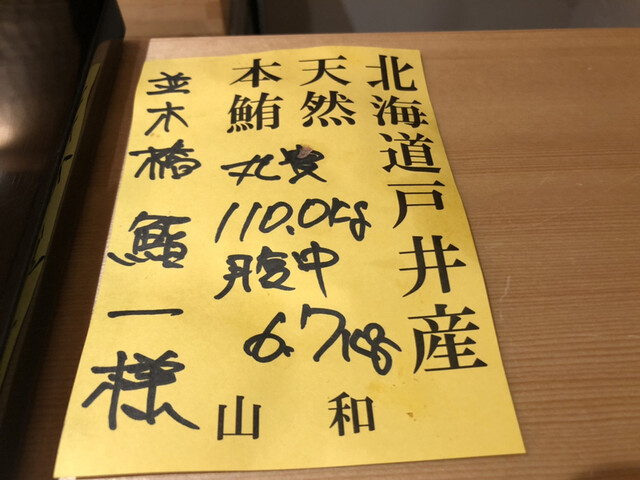 北海道戸井産
天然
本鮪
丸
110.0kg
腹中
6.7kg
山和
並木橋 鮨一様